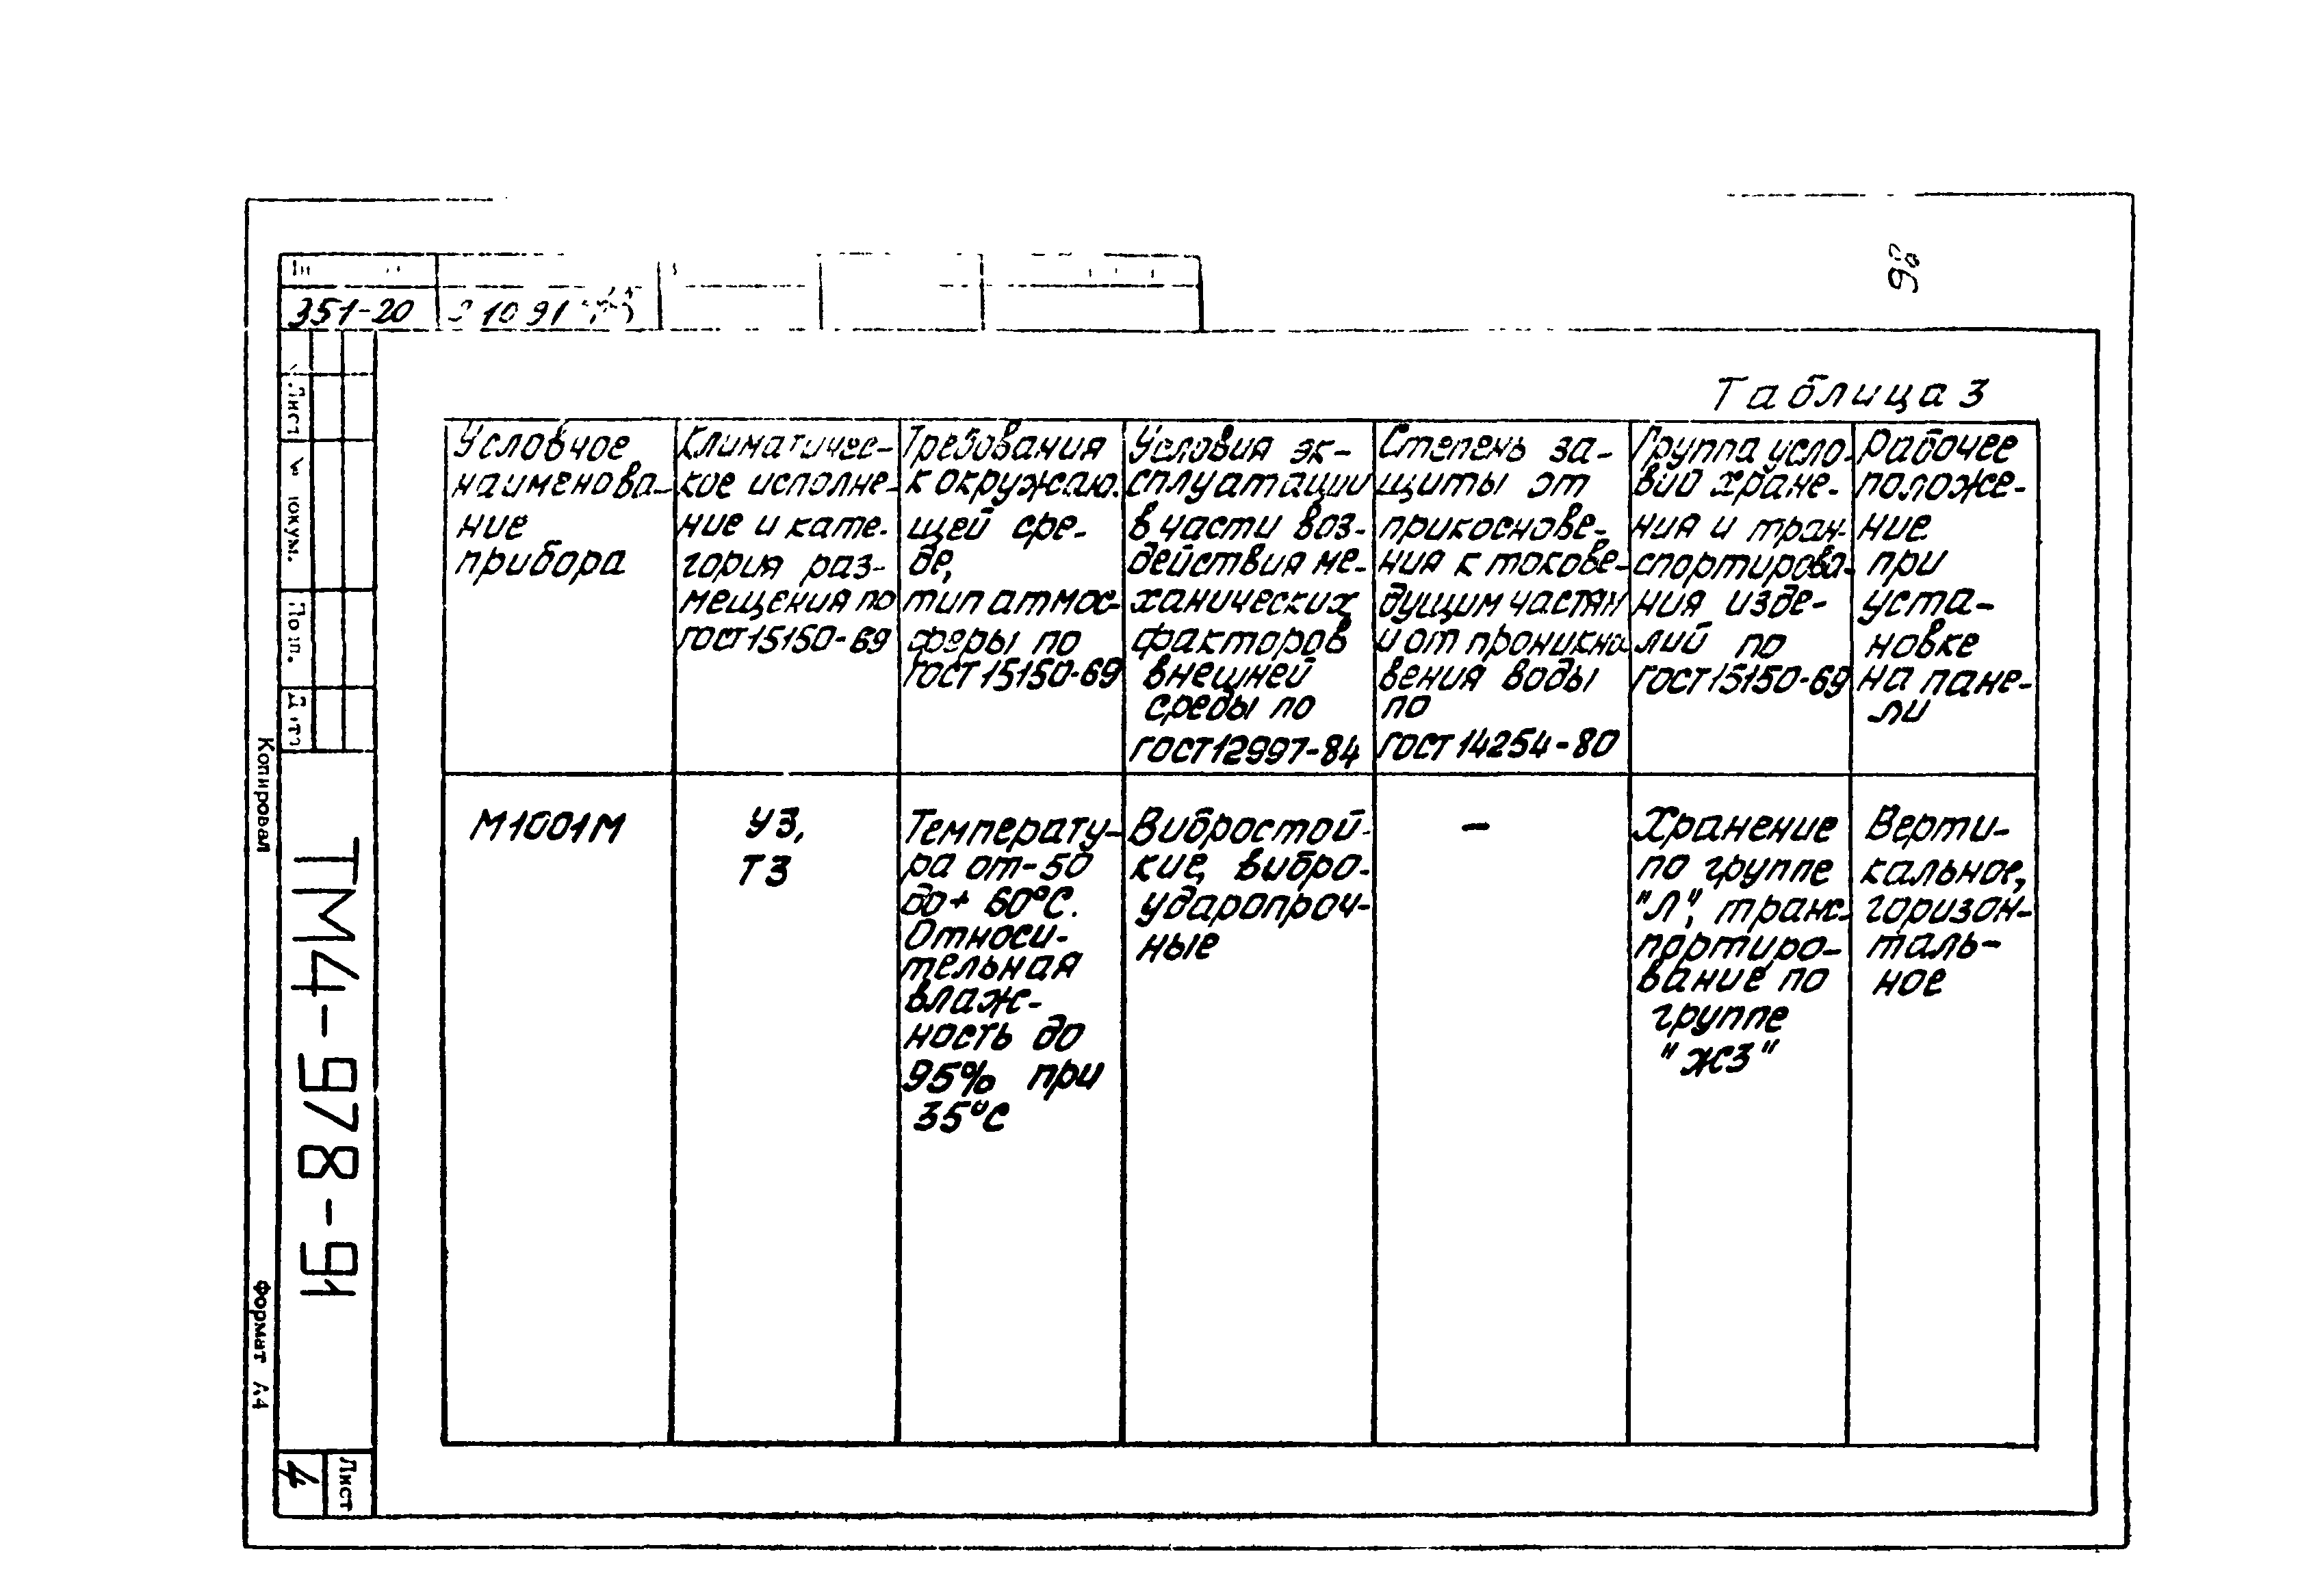 98
351-20
10 91
Таблица 3
Условное
наименова-
ние
прибора
Климатичес-
кое исполне-
ние и кате-
гория раз-
мещения по
ГОСТ 15150-69
Требования
к окружаю-
щей сре-
де,
тип атмос-
феры по
ГОСТ 15150-69
Условия эк-
сплуатации
в части воз-
действия ме-
ханических
факторов
внешней
среды по
ГОСТ 12997-84
Степень за-
щиты от
прикоснове-
ния к токове-
дущим частям
и от проникно-
вения воды
по
ГОСТ 14254-80
Группа усло-
вий хране-
ния и тран-
спортирова-
ния изде-
лий по
ГОСТ 15150-69
Рабочее
положе-
ние
при
уста-
новке
на пане-
ли
М1001М
У3,
Т3
Температу-
ра от -50
до + 60°С.
Относи-
тельная
влаж-
ность до
95% при
35°С
Вибростой-
кие, вибро-
ударопроч-
ные
-
Хранение
по группе
"Л", транс-
портиро-
вание по
группе
"Ж3"
Верти-
кальное,
горизон-
таль-
ное
Лист
докум.
Подп.
Дата
ТМ4-978-91
Лист
4
Копировал
Формат А4